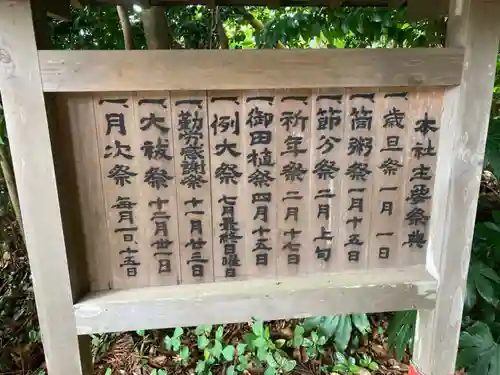 本社主要祭典
一歳旦祭 一月一日
一筒粥祭 一月十五日
一節分祭 二月上旬
一祈年祭 二月十七日
一御田植祭 四月十五日
一例大祭 七月最終日曜日
一勤労感謝祭 十一月廿三日
一大祓祭 十二月廿一日
一月次祭 毎月一日、十五日